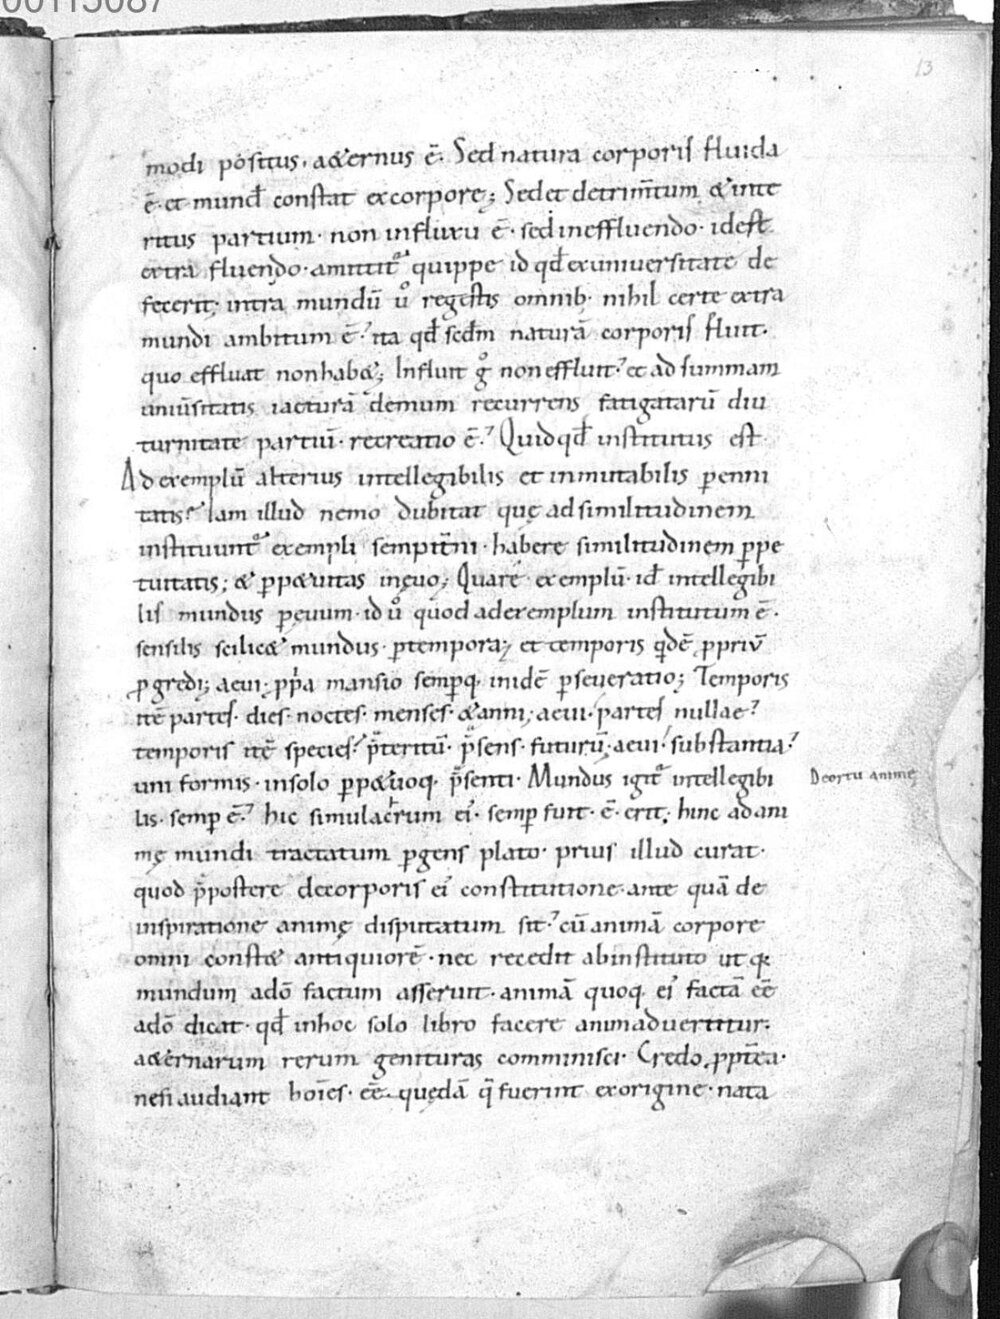 00115087
13
modi positus, a&ernus ē. Sed natura corporis fluida
ē. et mund̄ constat excorpore; Sed et detrim̄tum & inte
ritus partium. non influxu ē. sed ineffluendo. idest
extra fluendo. amittit᷑ quippe id qd̄ exuniuersitate de
fecerit; intra mundū u° regestis omnib; nihil certe extra
mundi ambitum ē? ita qd̄ scd̄m naturā corporis fluit.
quo effluat nonhab&; Influit g° non effluit? et ad summam
uniūsitatis iacturā demum recurrens fatigatarū diu
turnitate partiū. recreatio ē? Quidqd̄ institutus est
Ad exemplū alterius intellegibilis et inmutabilis p̄enni
tatis? Iam illud nemo dubitat quę adsimilitudinem
instituunt᷑ exempli sempit̄ni. habere similitudinem ꝑpe
tuitatis; & ꝑp&uitas inęuo; Quare exemplū. id̄ intellegibi
lis mundus ꝑęuum. id u° quod adexemplum institutum ē.
sensilis scilic& mundus. ꝑtempora; et temporis qdē ꝓpriū
ꝓgredi; aeui. ꝓp̄a mansio semꝑq. inidē ꝑseueratio; Temporis
itē partes. dies. noctes. menses. &anni; aeui. partes nullae?
temporis itē species? p̄teritū. p̄sens. futurū. aeui. substantia?
uni formis. insolo ꝑp&uoq. p̄senti. Mundus igit᷑ intellegibi
Deortu animę
lis. semꝑ ē? hic simulacrum ei᷒. semꝑ fuit. ē. erit; hinc ad ani
mę mundi tractatum ꝑgens plato. prius illud curat.
quod p̄postere decorporis ei᷒ constitutione. ante quā de
inspiratione animę disputatum sit? cū animā corpore
omni const& antiquiorē. nec recedit abinstituto ut q
mundum adō factum asseruit. animā quoq. ei᷒ factā eē
adō dicat. qd̄ inhoc solo libro facere animaduertitur.
a&ernarum rerum genituras comminisci. Credo ꝓpt̄ea.
nesi audiant hoīes. eē quędā q̄ fuerint exorigine. nata